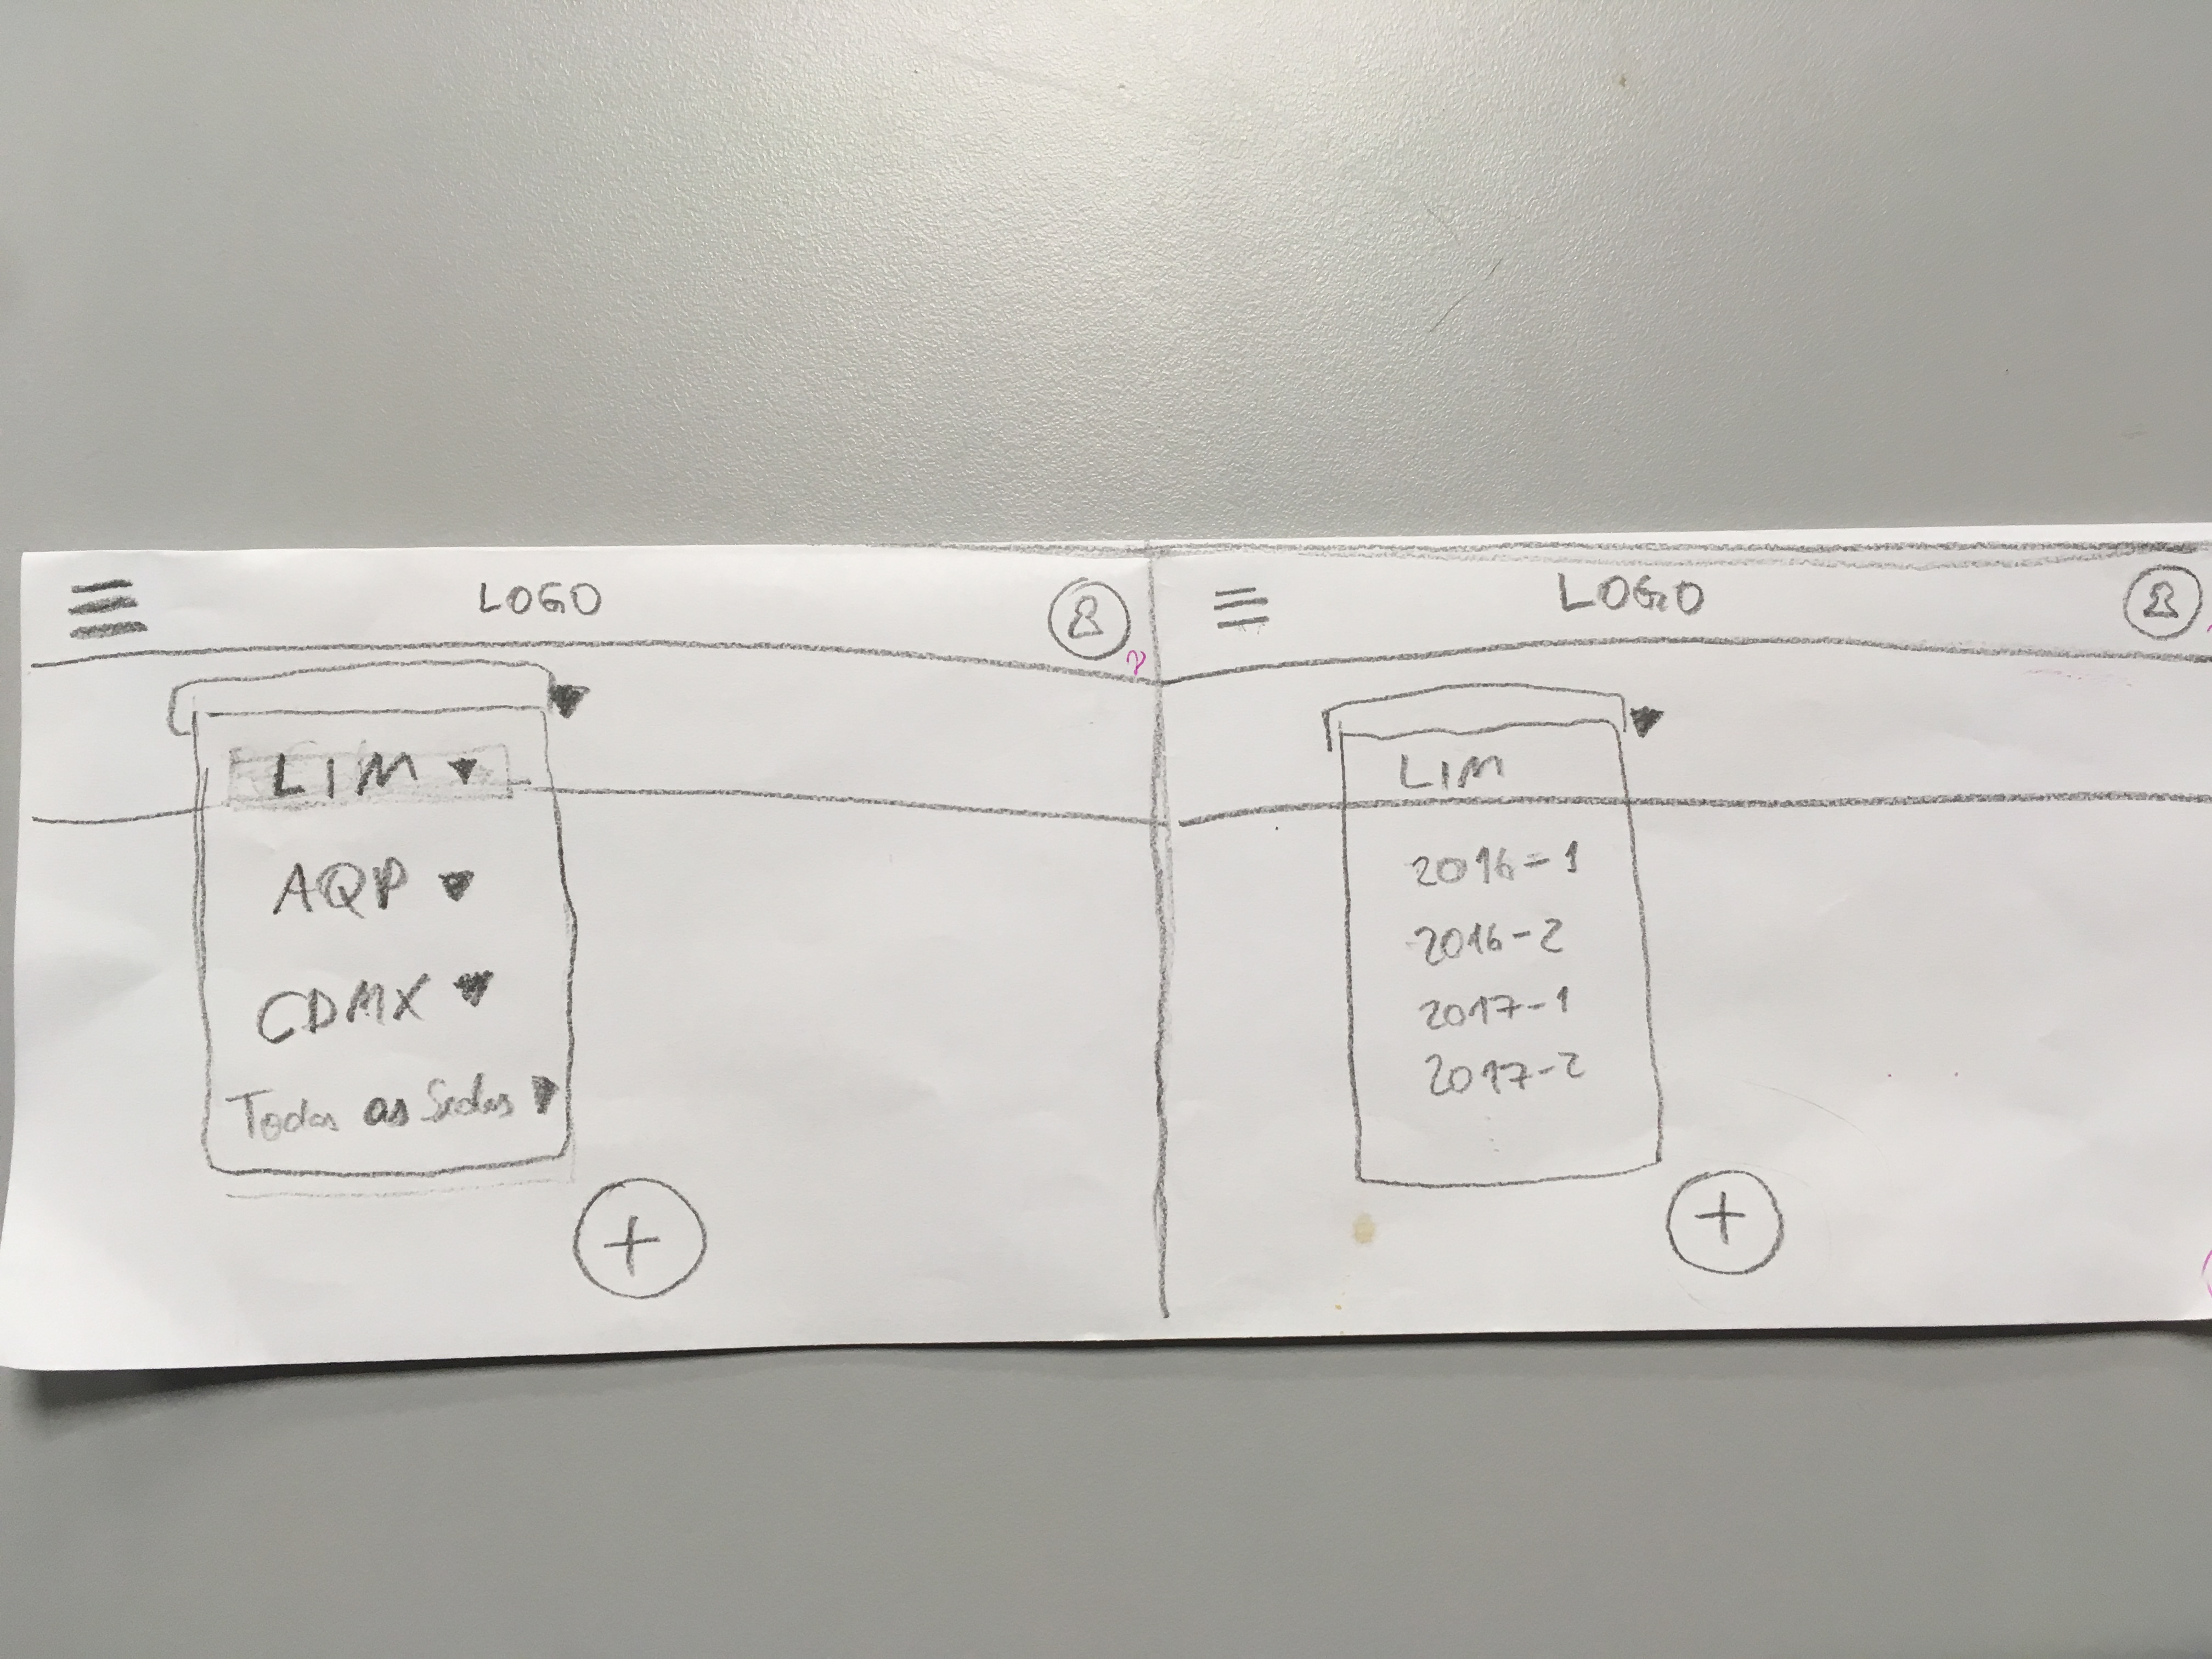 LOGO
LIM
AQP
CDMX
Todas as Sedes
?
LOGO
LIM
2016-1
2016-2
2017-1
2017-2